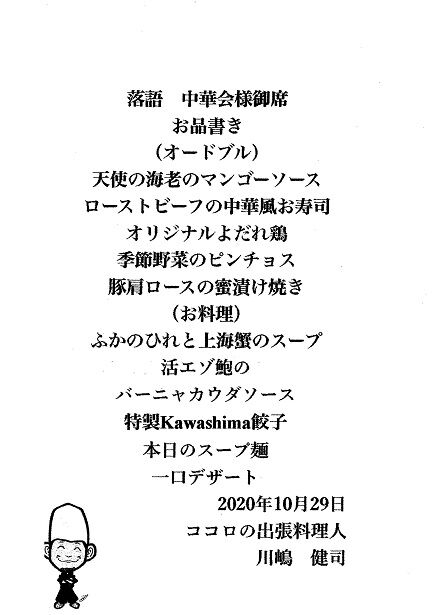 落語　中華会様御席
お品書き
（オードブル）
天使の海老のマンゴーソース
ローストビーフの中華風お寿司
オリジナルよだれ鶏
季節野菜のピンチョス
豚肩ロースの蜜漬け焼き
（お料理）
ふかのひれと上海蟹のスープ
活エゾ鮑の
バーニャカウダソース
特製Kawashima餃子
本日のスープ麺
一口デザート
2020年10月29日
ココロの出張料理人
川嶋　健司